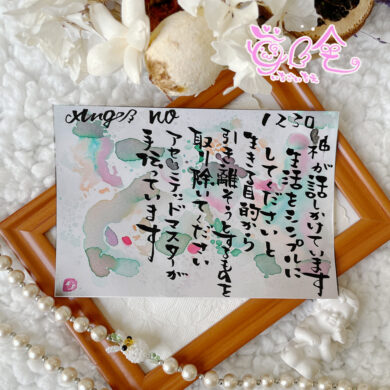 Angel no 1230
神が話しかけています
生活をシンプルに
してくださいと
生きる目的から
引き離そうとするものを
取り除いてください
アセンテッドマスターが
手伝っています